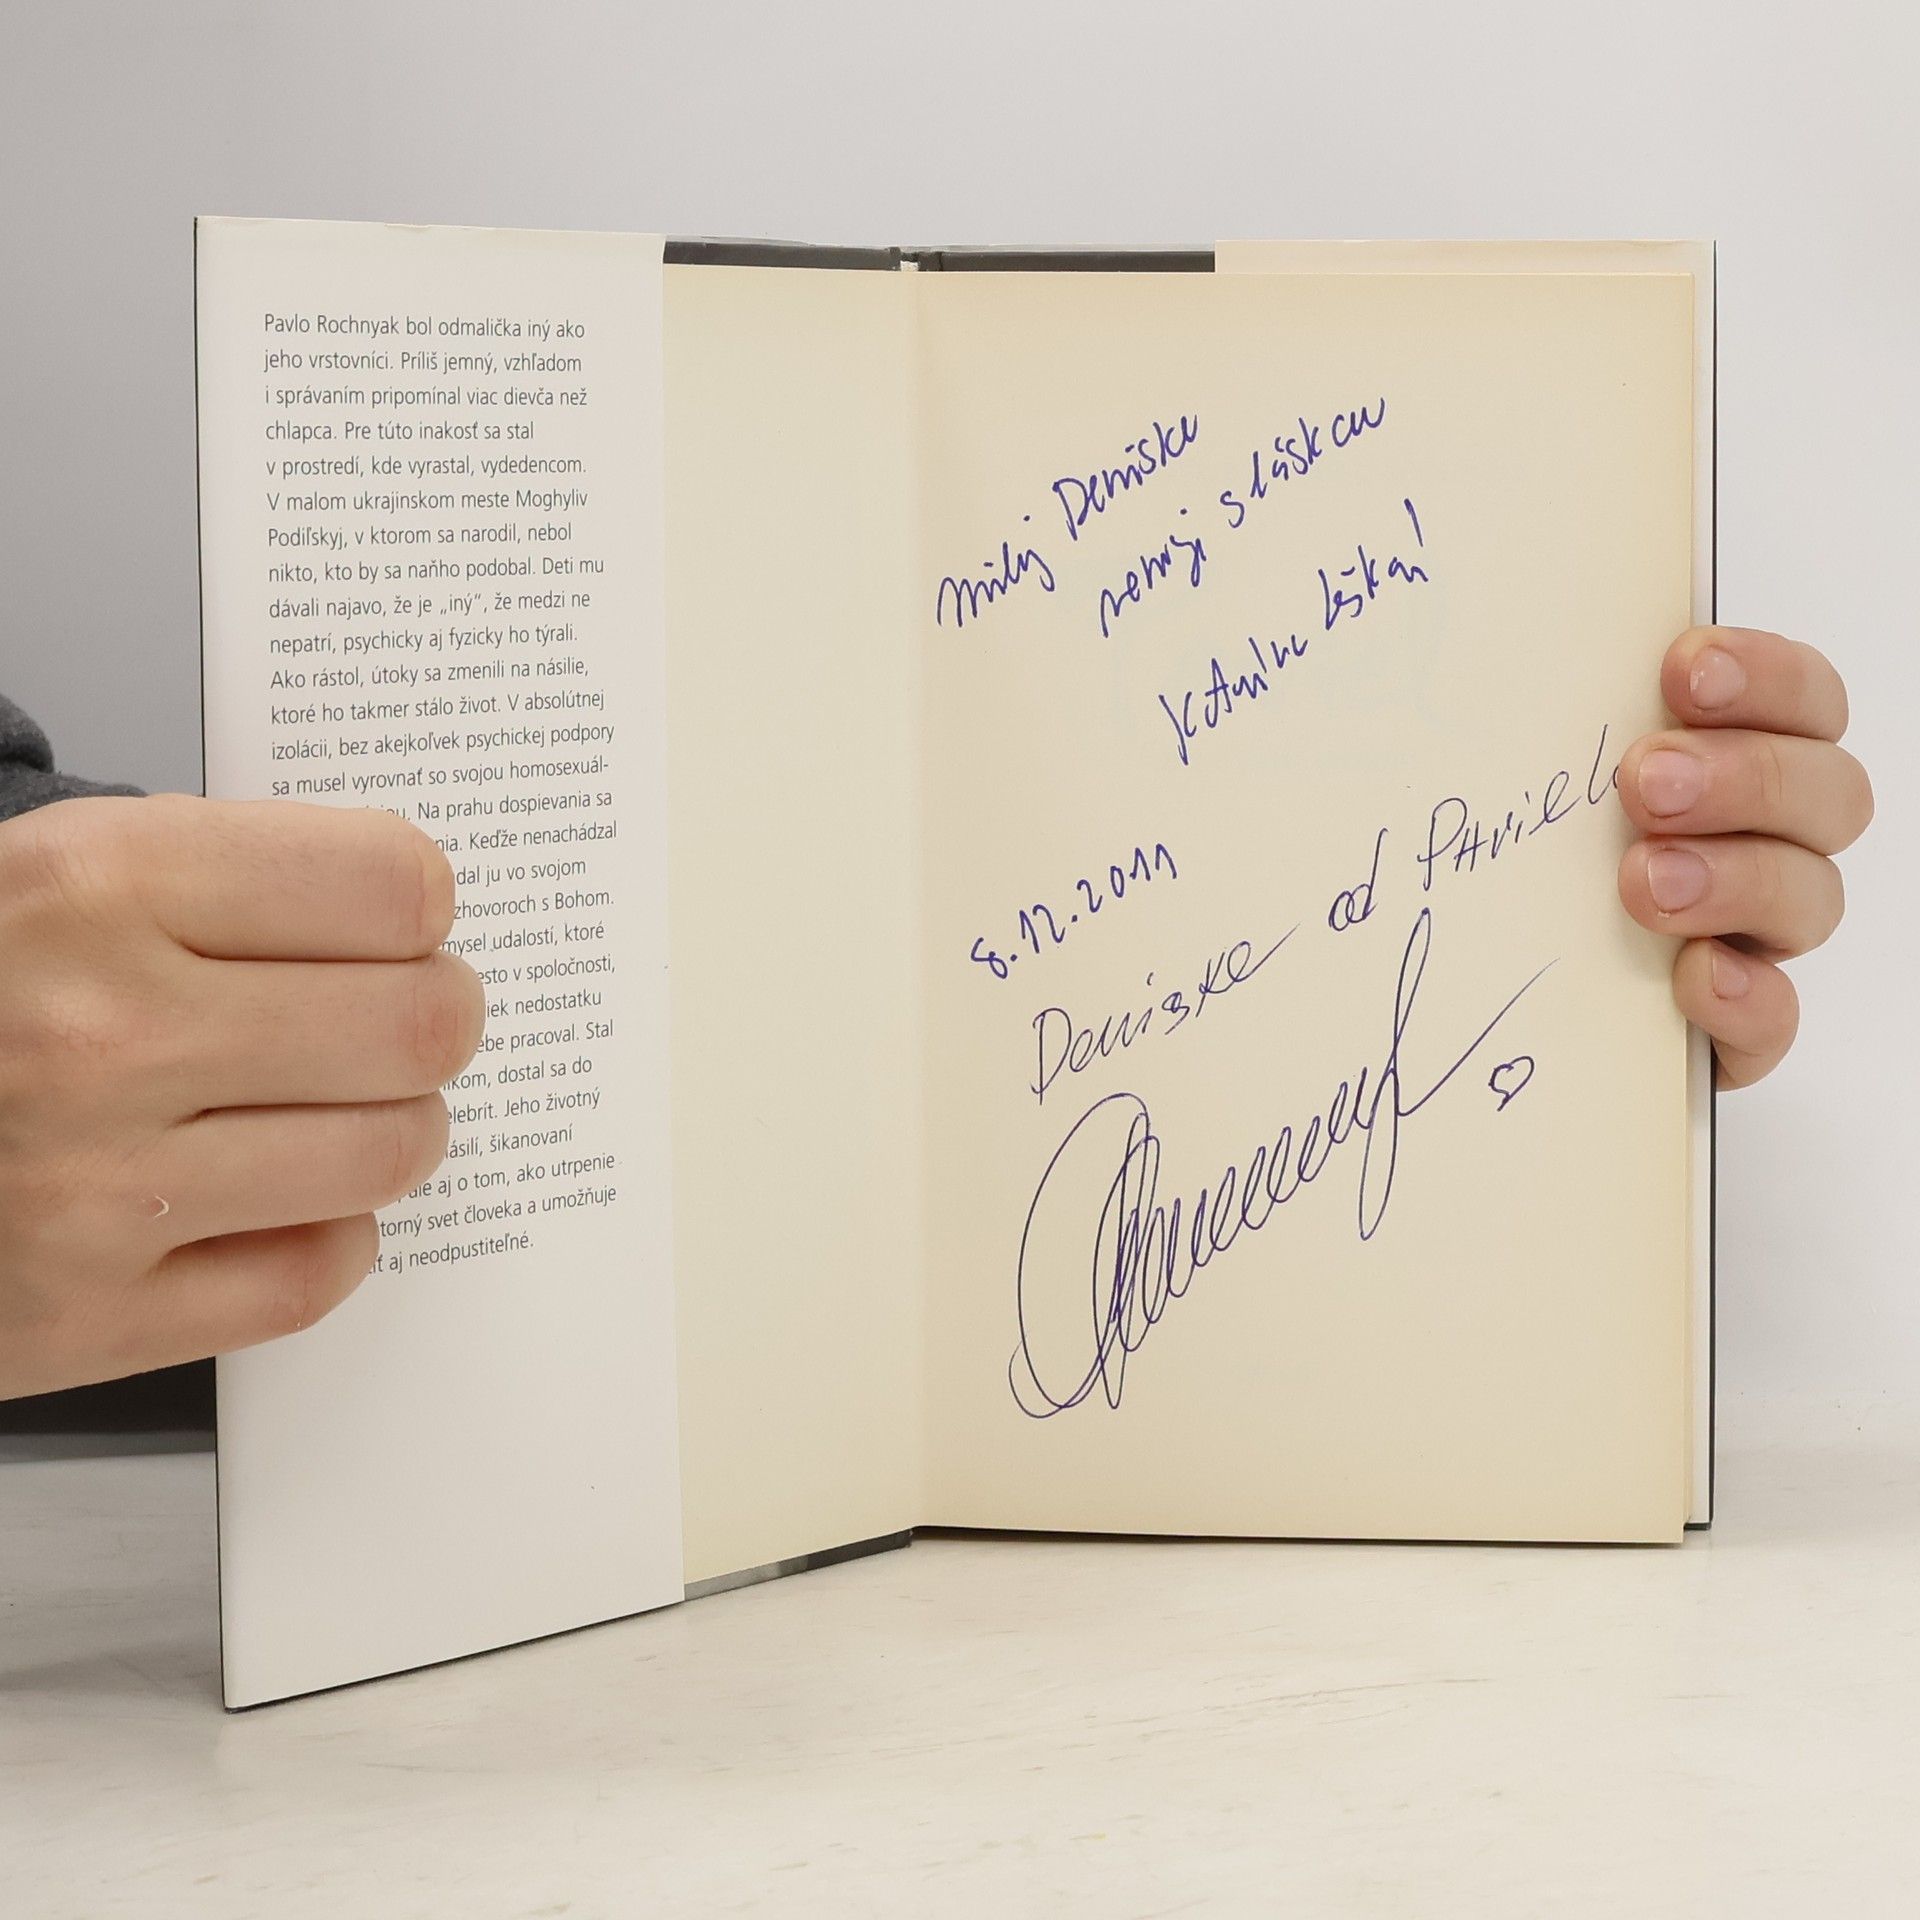 Pavlo Rochnyak bol odmalička iný ako
jeho vrstovníci. Príliš jemný, vzhľadom
i správaním pripomínal viac dievča než
chlapca. Pre túto inakosť sa stal
v prostredí, kde vyrastal, vydedencom.
V malom ukrajinskom meste Moghyliv
Podiľskyj, v ktorom sa narodil, nebol
nikto, kto by sa naňho podobal. Deti mu
dávali najavo, že je „iný“, že medzi ne
nepatrí, psychicky aj fyzicky ho týrali.
Ako rástol, útoky sa zmenili na násilie,
ktoré ho takmer stálo život. V absolútnej
izolácii, bez akejkoľvek psychickej podpory
sa musel vyrovnať so svojou homosexuál-
Na prahu dospievania sa
Keďže nenachádzal
dal ju vo svojom
zhovoroch s Bohom.
mysel udalostí, ktoré
esto v spoločnosti,
iek nedostatku
ebe pracoval. Stal
ikom, dostal sa do
elebrít. Jeho životný
ásilí, šikanovaní
ale aj o tom, ako utrpenie
torný svet človeka a umožňuje
ť aj neodpustiteľné.
Deniske
s láskou
8.12.2011
Deniske od